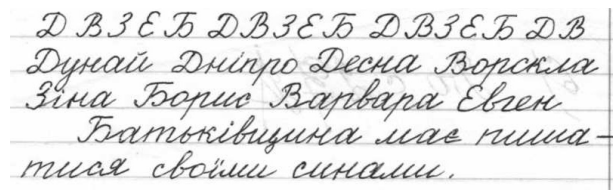 Д В З Е Б Д В З Е Б Д В З Е Б Д В
Дунай Дніпро Десна Ворскла
Зіна Борис Варвара Евген
Батьківщина має пиша-
тися своїми синами.